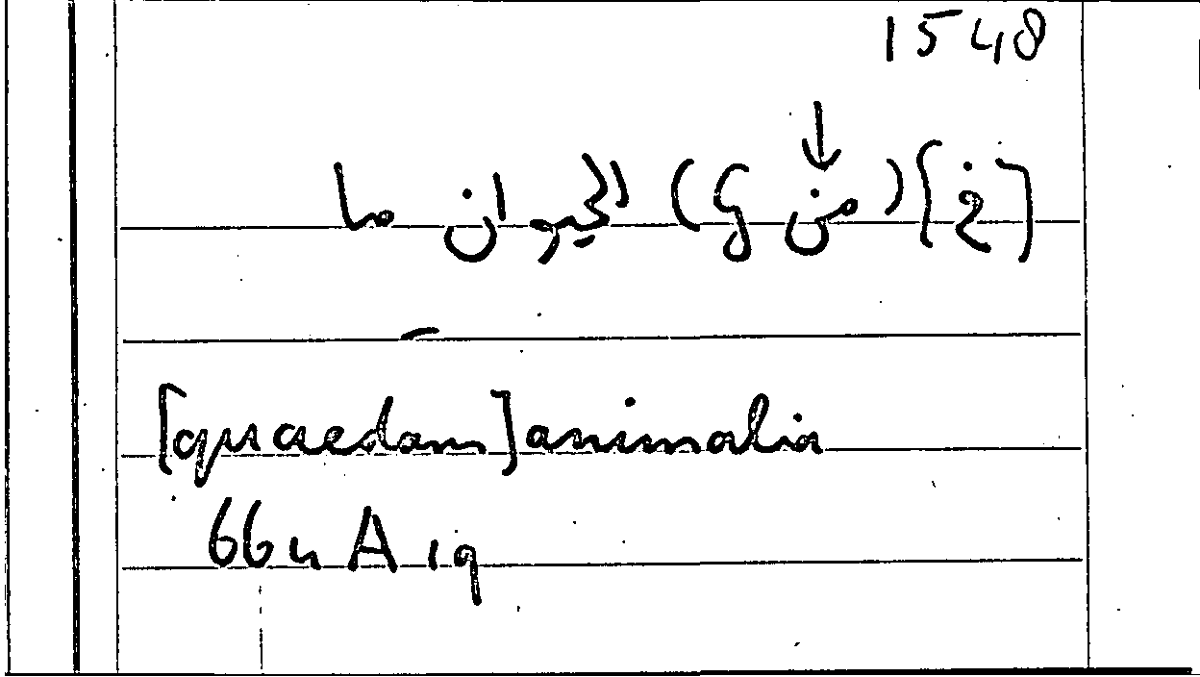 1548
↓
[في] (من G) الحيوان ما
[quaedam] animalia
664 A 19